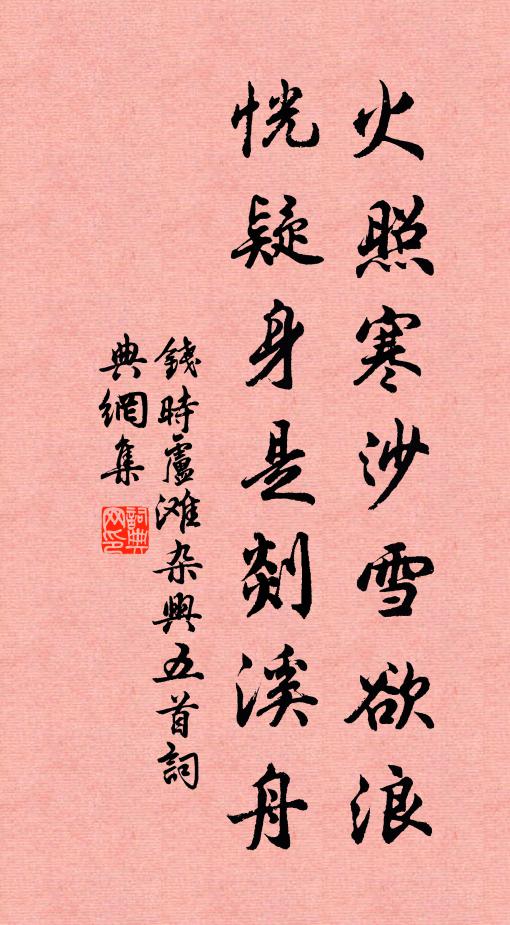 火照寒沙雪欲浪
恍疑身是剡溪舟
錢時盧滩杂興五首詞
典網集
詞典
网印